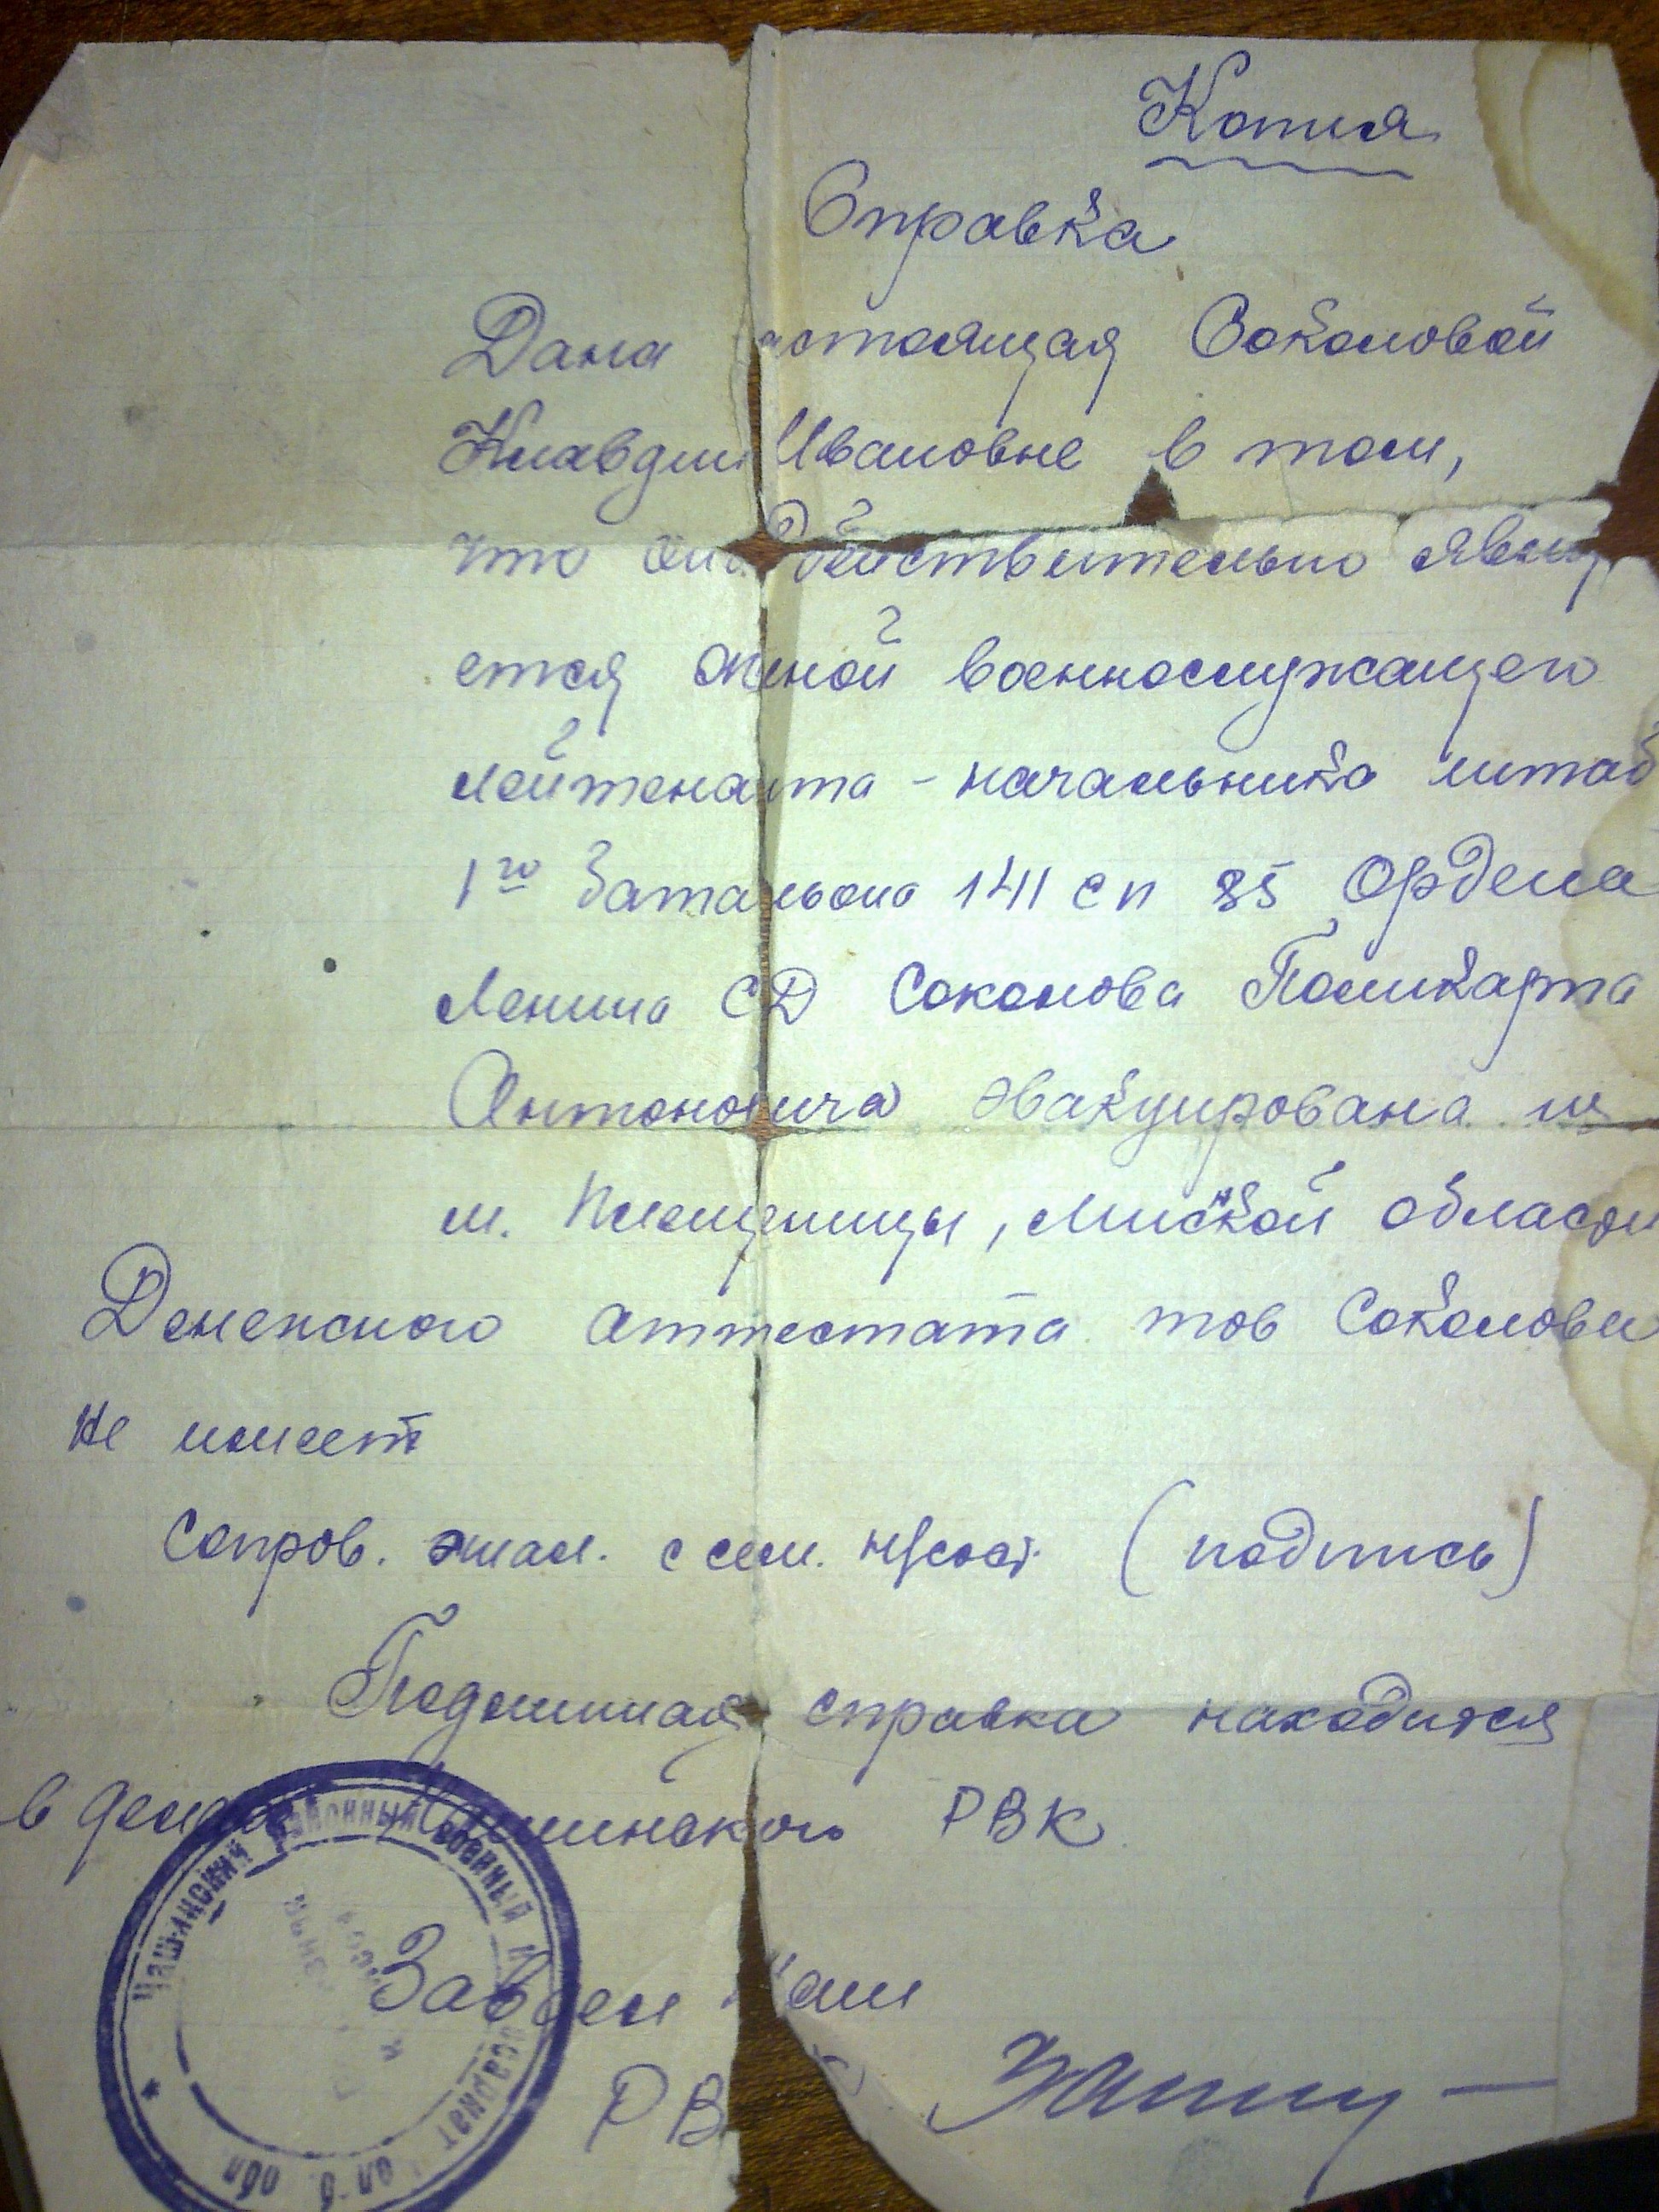 Копия
Справка
Дана настоящая Соколовой
Клавдии Ивановне в том,
что она действительно явля
ется женой военнослужащего
лейтенанта - начальника штаб
1го батальона 141 сп 85 Ордена
Ленина СД Соколова Поликарпа
Антоновича эвакуирована из
м. Плещеницы, Минской области
Денежного аттестата тов Соколова
не имеет
Сопров. эшал. с сем. н/сост. (подпись)
Подлинная справка находится
в делах Чашинского РВК
Зав дел
РВ
ЧАШИНСКИЙ РАЙОННЫЙ ВОЕННЫЙ КОМИССАРИАТ
ОБЛ